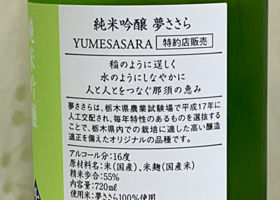 純米吟醸
純米吟醸 夢ささら
YUMESASARA 特約店販売
稲のように逞しく
水のようにしなやかに
人と人とをつなぐ那須の恵み
夢ささらは、栃木県農業試験場で平成17年に
人工交配され、毎年特性のあるものを選抜さ
れて、栃木県内での栽培に適した高い醸造
適正を備えたオリジナルの品種です。
アルコール分:16度
原材料名:米(国産)、米麹(国産米)
精米歩合:55%
内容量:720ml
使用米:夢ささら100%使用